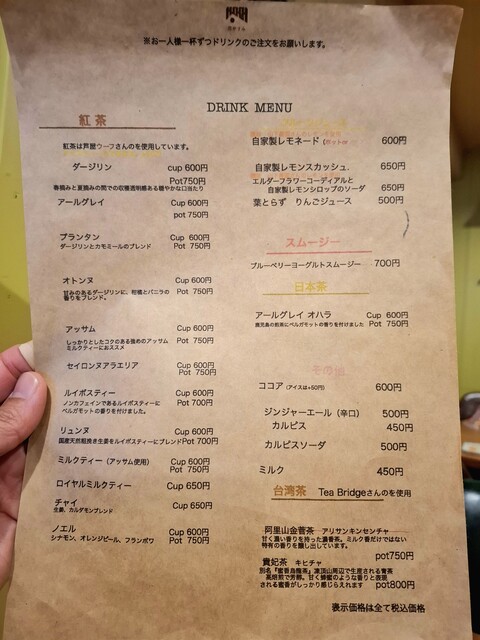 ※お一人様一杯ずつドリンクのご注文をお願いします。
DRINK MENU
紅茶
紅茶は芦屋ウーフさんのを使用しています。
ダージリン cup 600円
Pot750円
春摘みと夏摘みの間での収穫透明感ある穏やかな口当たり
アールグレイ Cup 600円
pot 750円
プランタン Cup 600円
ダージリンとカモミールのブレンド Pot 750円
オトンヌ Cup 600円
甘みのあるダージリンに、柑橘とバニラの Pot 750円
香りをブレンド。
アッサム Cup 600円
しっかりとしたコクのある強めのアッサム Pot 750円
ミルクティーにおススメ
セイロンヌアラエリア Cup 600円
Pot 750円
ルイボスティー Cup 600円
ノンカフェインであるルイボスティーに Pot 700円
ベルガモットの香りを付けました。
リュンヌ Cup 600円
国産天然粗挽き生姜をルイボスティーにブレンド Pot 700円
ミルクティー（アッサム使用） Cup 600円
Pot 750円
ロイヤルミルクティー Cup 650円
チャイ Cup 650円
生姜、カルダモンブレンド
ノエル Cup 600円
シナモン、オレンジピール、フランボワ Pot 750円
自家製レモネード 600円
自家製レモンスカッシュ 650円
エルダーフラワーコーディアルと
自家製レモンシロップのソーダ 650円
葉とらず りんごジュース 500円
スムージー
ブルーベリーヨーグルトスムージー 700円
日本茶
アールグレイ オハラ Cup 600円
鹿児島の煎茶にベルガモットの香りを付けました Pot 750円
その他
ココア（アイスは+50円） 600円
ジンジャーエール（辛口） 500円
カルピス 450円
カルピスソーダ 500円
ミルク 450円
台湾茶 Tea Bridgeさんのを使用
阿里山金萱茶 アリサンキンセンチャ
甘く濃い香りを持った濃香茶。ミルク香だけではない
特有の香りを醸し出しています。
pot750円
貴妃茶 キヒチャ
別名『蜜香烏龍茶』凍頂山周辺で生産される青茶
高焙煎で芳醇。甘く蜂蜜のような香りと表現
される蜜香がしっかり感じられえれます pot800円
表示価格は全て税込価格